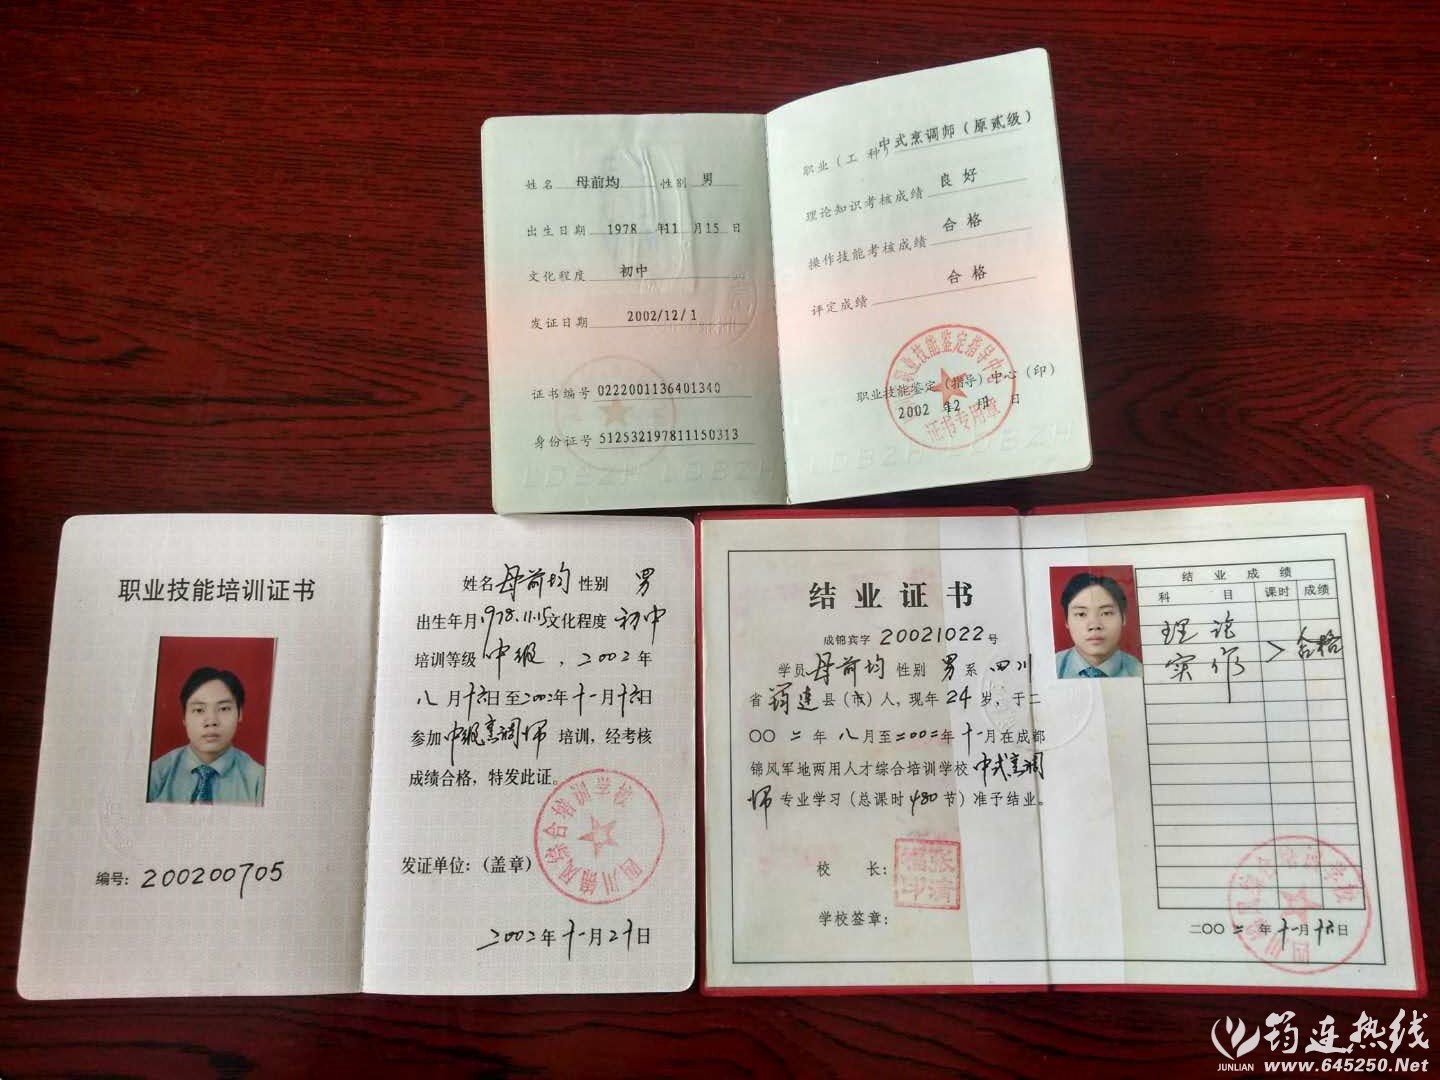 姓名 母前均 性别 男
出生日期 1978 年11 月15 日
文化程度 初中
发证日期 2002/12/1
证书编号 0222001136401340
身份证号 512532197811150313
职业（工 种）中式烹调师（原贰级）
理论知识考核成绩 良 好
操作技能考核成绩 合 格
评定成绩 合 格
职业技能鉴定（指导）中心（印）
2002 年12 月 日
职业技能鉴定指导中心
证书专用章
LDBZH LDBZH LDBZH LDBZH
职业技能培训证书
编号：200200705
姓名母前均 性别 男
出生年月1978.11.15文化程度 初中
培训等级 中级，二00二年
八月十六日至二00二年十一月十六日
参加中级烹调师 培训，经考核
成绩合格，特发此证。
发证单位：（盖章）
四川锦风综合培训学校
二00二年十一月二十日
结业证书
成锦宾字 20021022 号
学员母前均 性别 男 系 四川
省 筠连县（市）人，现年 24 岁，于二
〇〇 二 年 八 月至二00二年 十一月在成都
锦风军地两用人才综合培训学校 中式烹调
师 专业学习（总课时 480 节）准予结业。
校 长：
学校签章：
结业成绩
科 目 课时 成绩
理论
实作 合格
二〇〇 二 年 十一月 十六日
筠连热线
JUNLIAN www.645250.Net